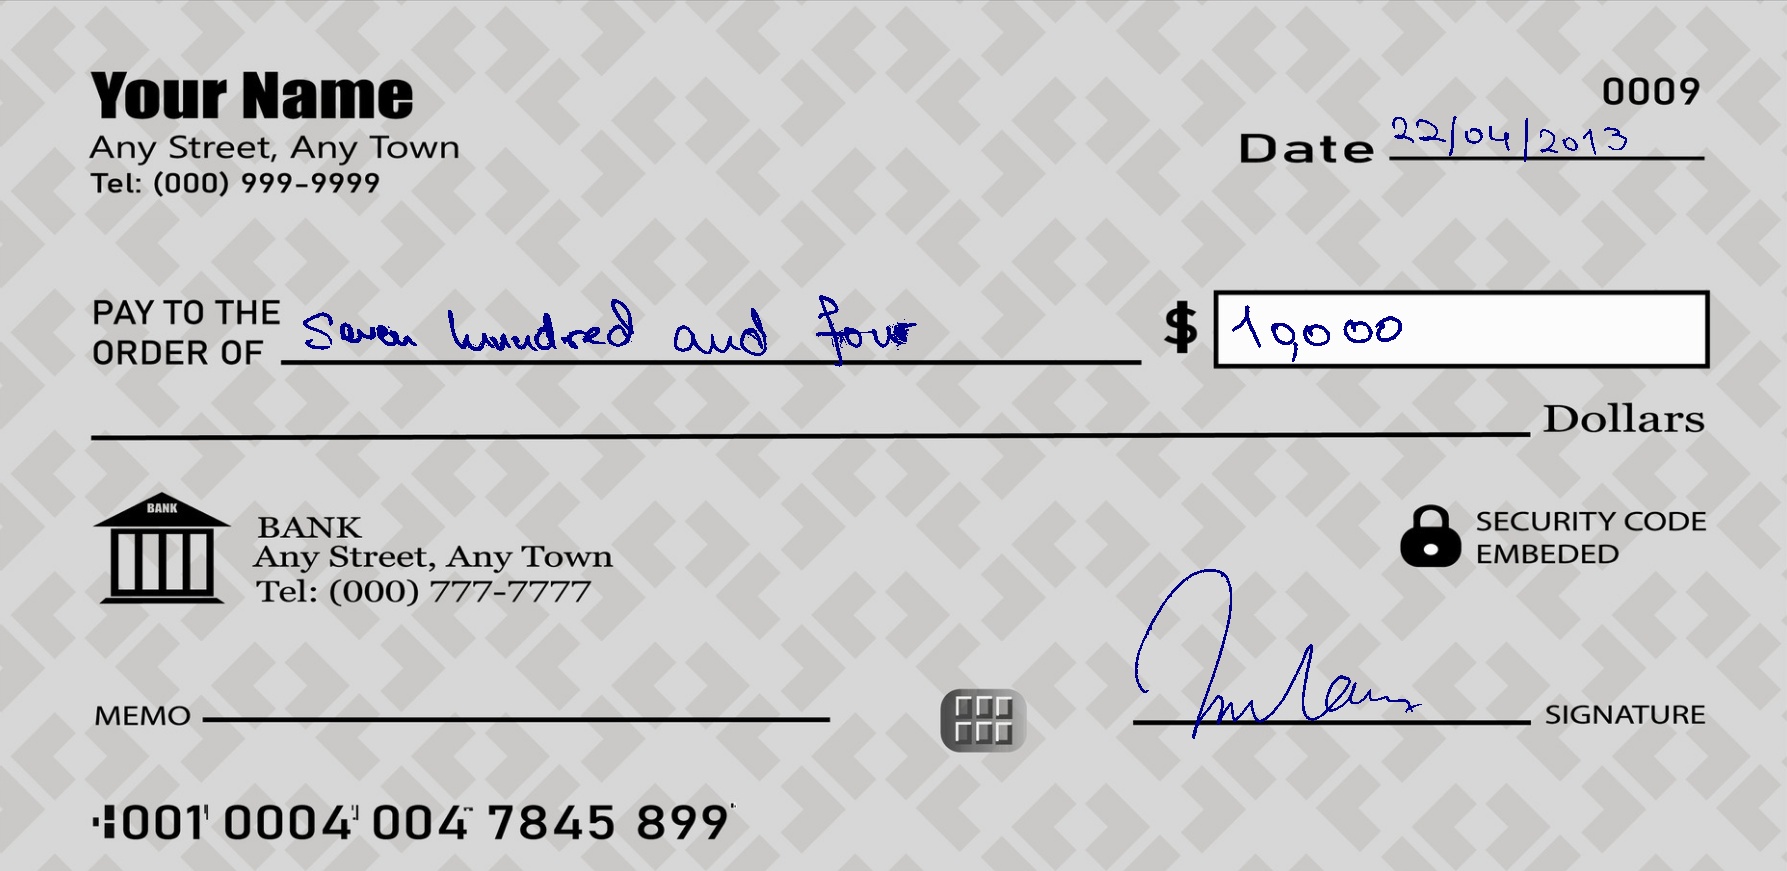 Your Name
0009
Any Street, Any Town
Date 22/04/2013
Tel: (000) 999-9999
PAY TO THE
ORDER OF Seven hundred and four $ 10,000
Dollars
BANK
BANK
Any Street, Any Town
Tel: (000) 777-7777
SECURITY CODE
EMBEDED
MEMO
SIGNATURE
001 0004 004 7845 899